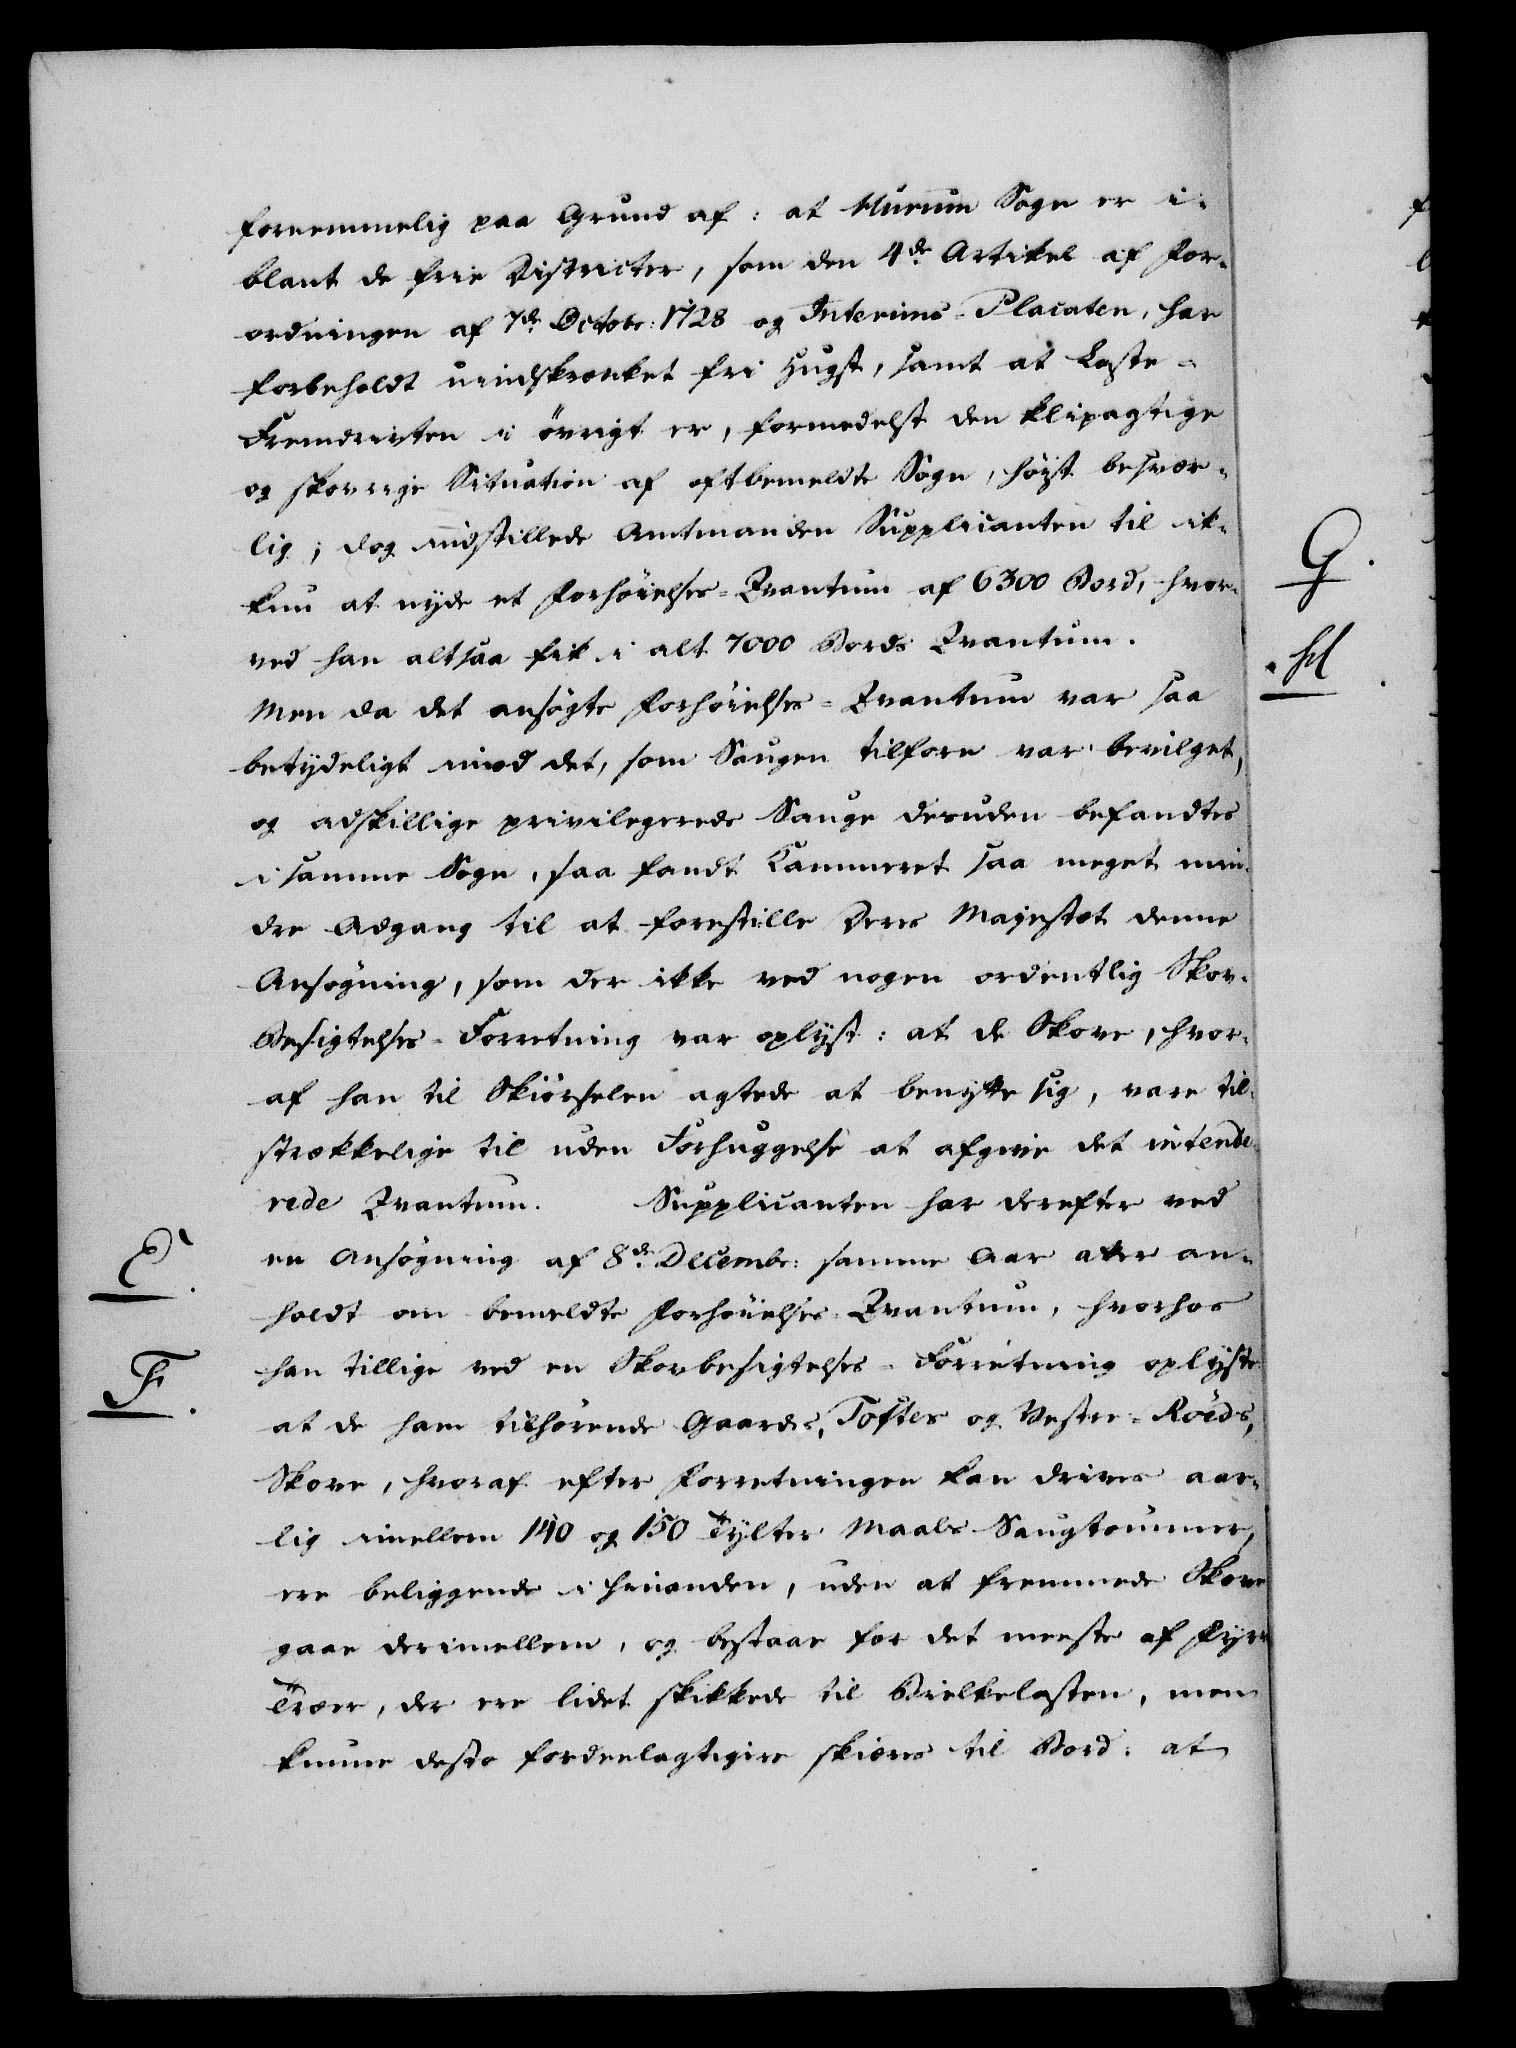 fornemmelig paa Grund af: at Murum Sogn er i-
blant de frie Districter, som den 4de Artikel af For-
ordningen af 7de Octobr: 1728 og Interims-Placaten, har
forbeholdt uindskrænket fri Hugst, samt at Laste-
Fremdrivten i øvrigt er, formedelst den klipagtige
og skovrige Situation af oftbemeldte Sogn, høyst besvær-
lig; dog indstillede Amtmanden Supplicanten til ik-
kun at nyde et Forhøielses-Qvantum af 6300 Bord, hvor-
ved han altsaa fik i alt 7000 Bords Qvantum.
Men da det ansøgte Forhøielses-Qvantum var saa
betydeligt imod det, som Saugen tilforn var bevilget,
og adskillige privilegerede Sauge desuden befandtes
i samme Sogn, saa fandt Kammeret saa meget min-
dre Adgang til at forestille Deres Majestæt denne
Ansøgning, som der ikke ved nogen ordentlig Skov-
Besigtelses-Forretning var oplyst: at de Skove, hvor-
af han til Skiørselen agtede at benytte sig, vare til-
strækkelige til uden Forhuggelse at afgive det intende-
rede Qvantum. Supplicanten har derefter ved
en Ansøgning af 8de Decembr: samme Aar atter an-
holdt om bemeldte Forhøielses-Qvantum, hvorhos
han tillige ved en Skovbesigtelses-Forretning oplyste:
at de ham tilhørende Gaarde, Toftes og Vestre-Röeds,
Skove, hvoraf efter Forretningen kan drives aar-
lig imellem 140 og 150 Tylter Maals Saugtømmer,
ere beliggende i hinanden, uden at fremmede Skove
gaae derimellem, og bestaae for det meeste af Fyrre
Træer, der ere lidet skikkede til Bielkelasten, men
kunne desto fordeelagtigere skiæres til Bord: at
E.
F.
G.
H.